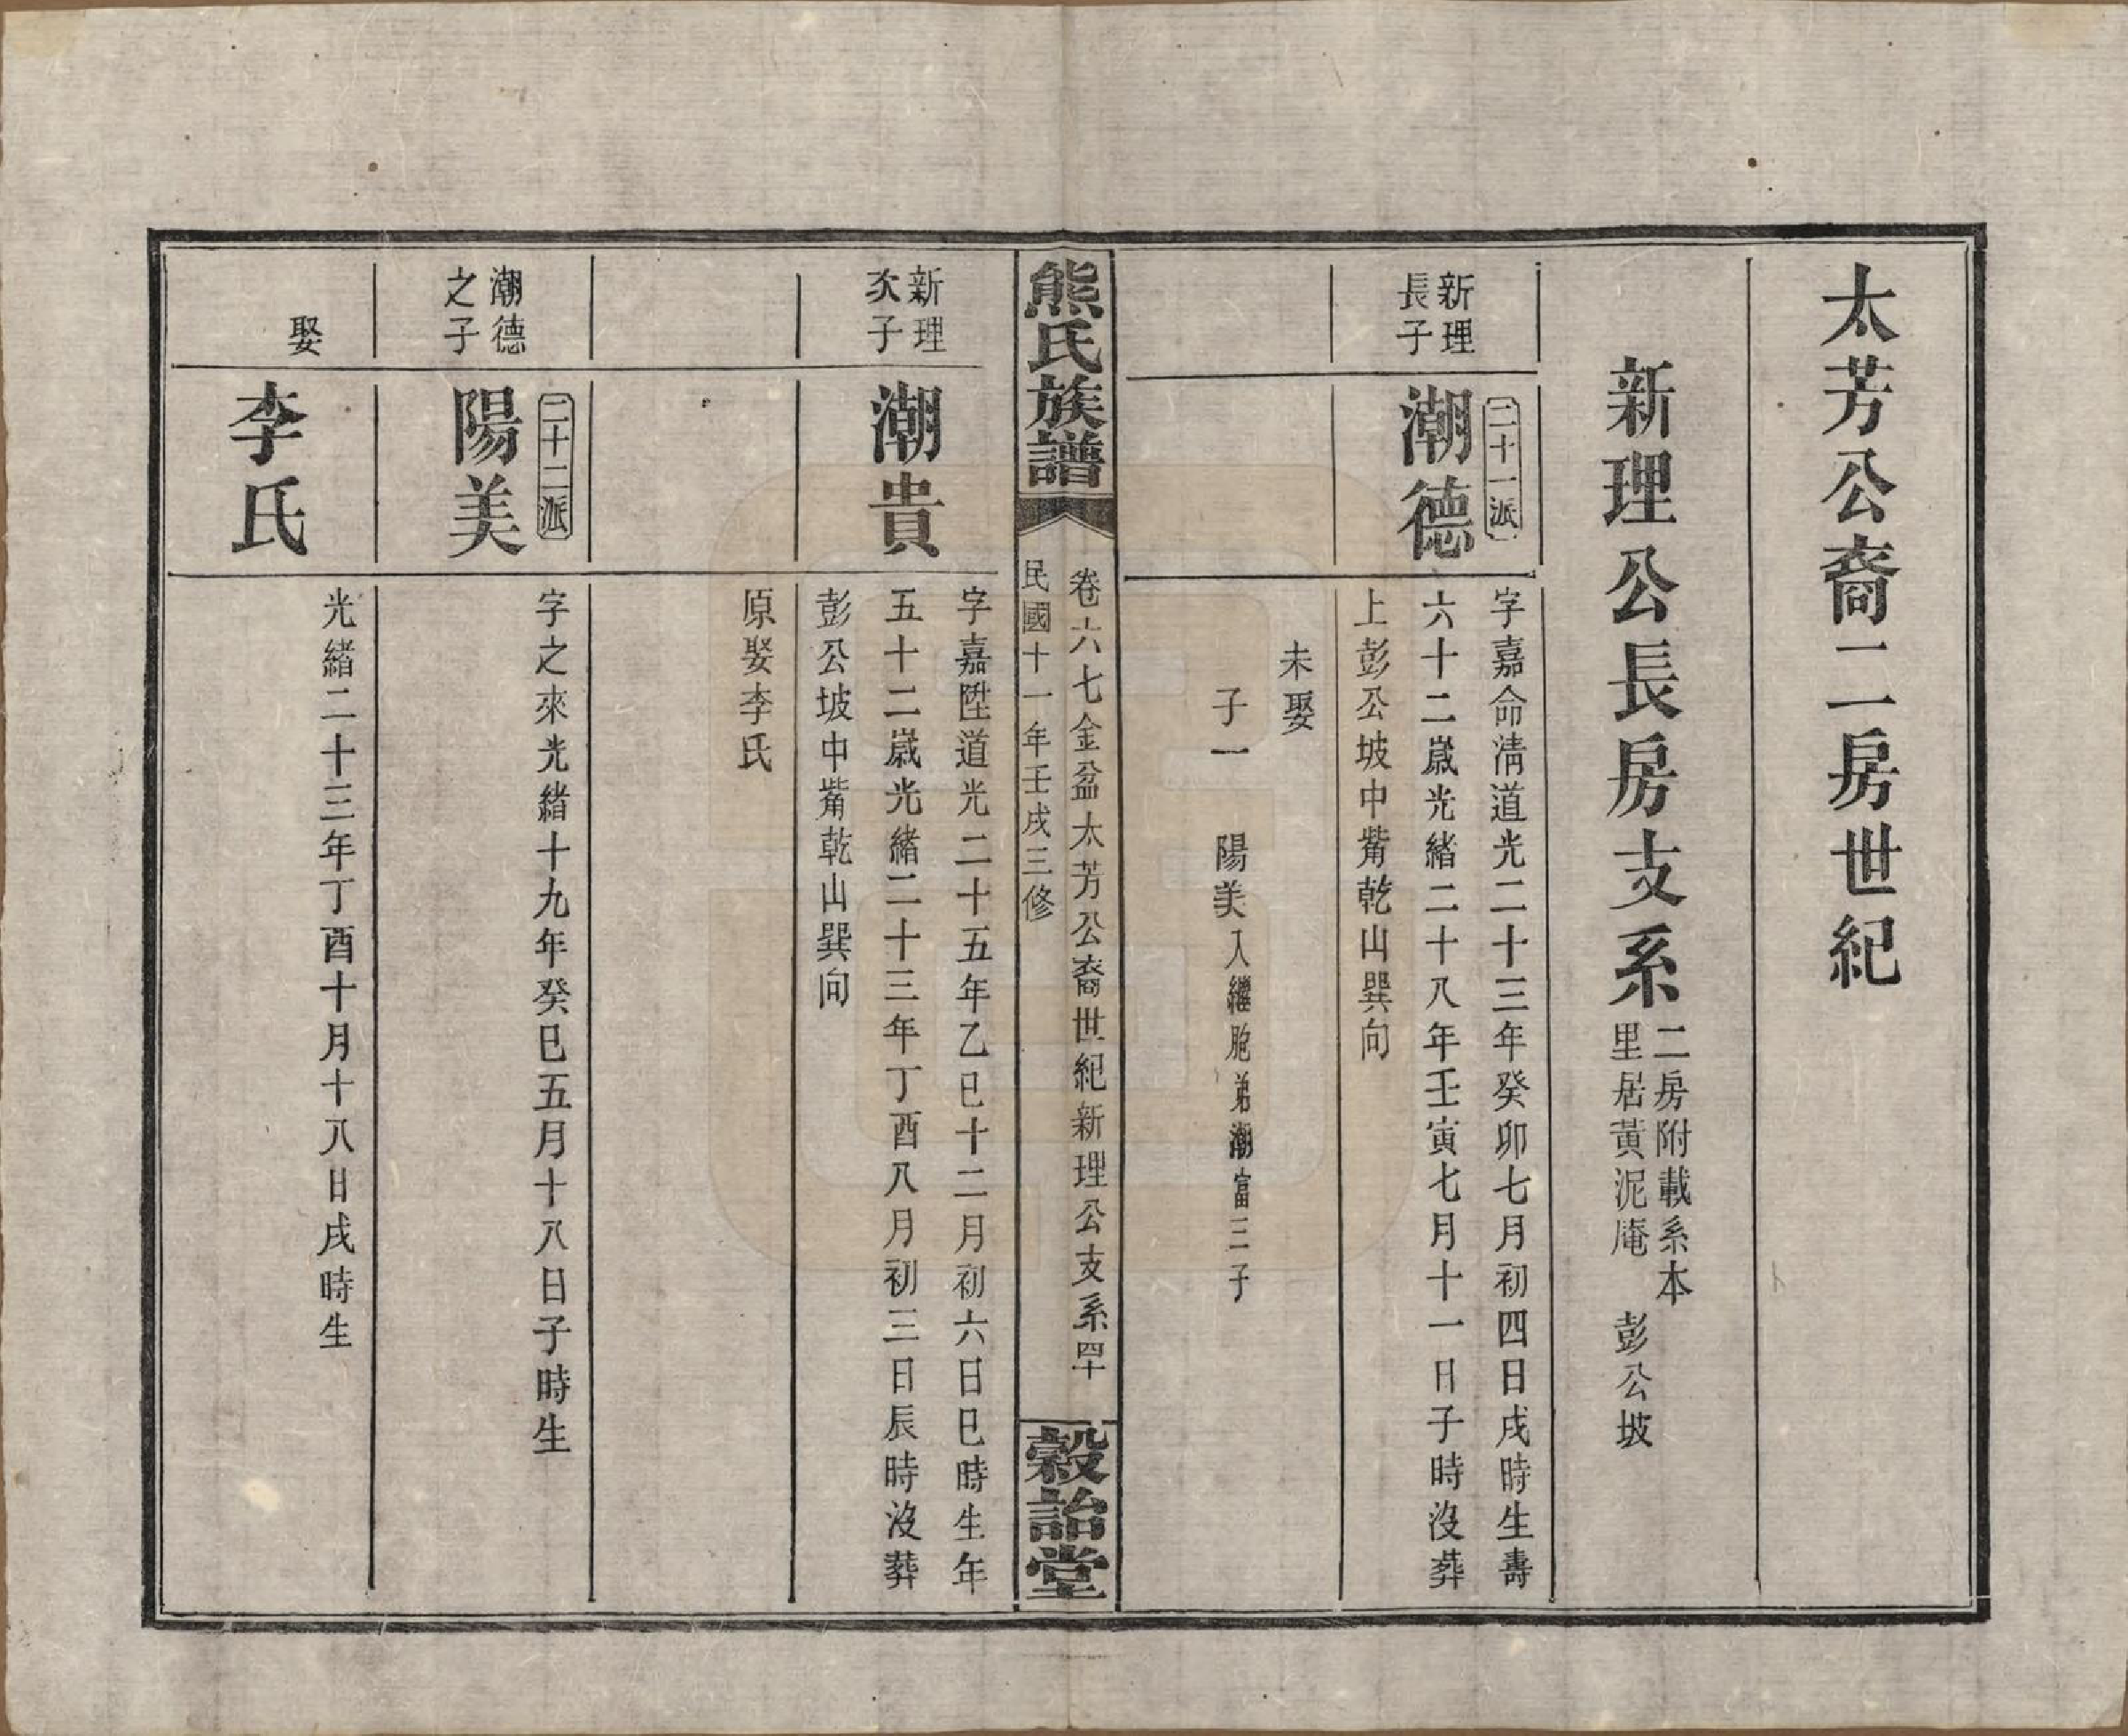 太芳公裔二房世紀
新理公長房支系
二房附載系本
里居黃泥庵　彭公坡
新理
長子
二十一派
潮德
字嘉命淸道光二十三年癸卯七月初四日戌時生壽
六十二歲光緒二十八年壬寅七月十一日子時沒葬
上彭公坡中觜乾山巽向
未娶
子一　陽美入繼胞弟潮富三子
熊氏族譜
卷六七金盆太芳公裔世紀新理公支系四十
民國十一年壬戌三修
穀詒堂
新理
次子
潮貴
字嘉陞道光二十五年乙巳十二月初六日巳時生年
五十二歲光緒二十三年丁酉八月初三日辰時沒葬
彭公坡中觜乾山巽向
原娶李氏
潮德
之子
二十二派
陽美
字之來光緒十九年癸巳五月十八日子時生
娶
李氏
光緒二十三年丁酉十月十八日戌時生